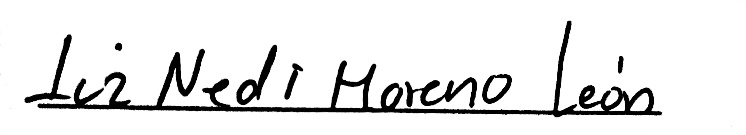 Luz Nedi Moreno León